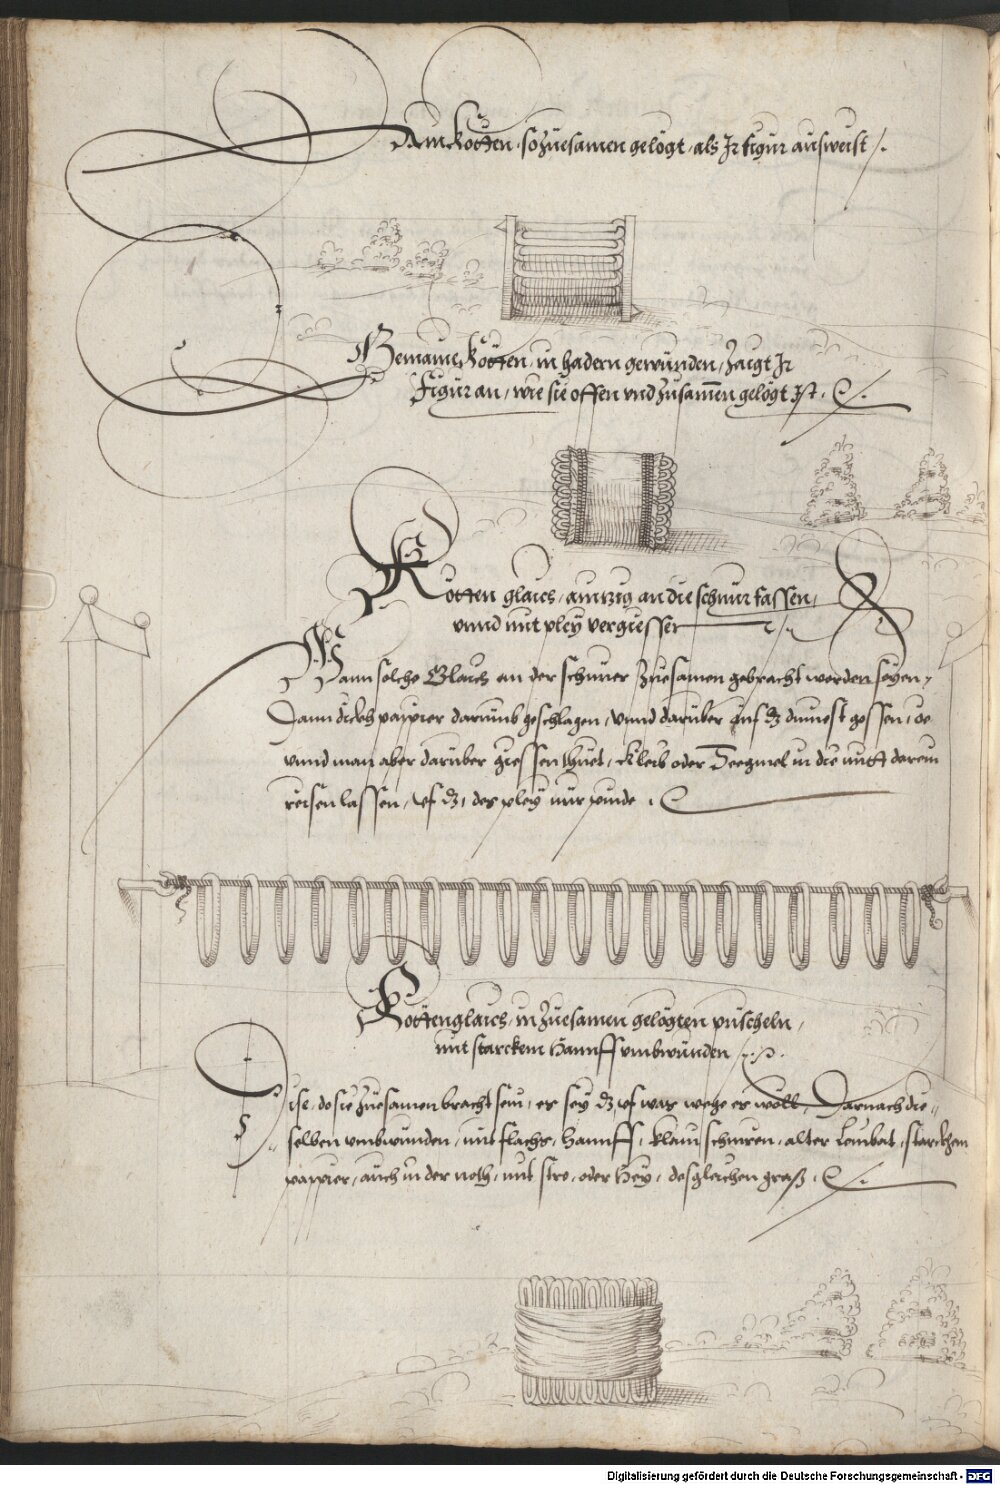 Ain Kötten, so Zuesamen gelögt, als Ir Figur ausweist /.
Gemaine Kötten, in hadern gewunden, Zaigt Ir
Figur an, wie sie offen vnd Zusamen gelögt Ist.
Kötten glaich, aintzig an die schnur fassen,
vnnd mit pley vergiessen
Wann solche Glaich an der schnuer Zuesamen gebracht werden seyen,
Dann dickh pappier darumb geschlagen, vnnd darüber auf dz dinnest gossen,
vnnd man aber darüber giessen thuet, Kleib oder Seegmel in die mitt darein
reisen lassen, vf dz, des pley nur pinde.
Köttenglaich, in Zuesamen gelögten puscheln,
mit starckem Hannff vmbwunden
Dise, do sie Zuesamen bracht sein, es sey dz vf was wege es wöll, Darnach die=
selben vmbwunden, mit flachs, Hannff, klain schnüren, alter Leinbat, starckhem
pappier, auch in der noth, mit stro, oder Hey, desgleichen graß.
Digitalisierung gefördert durch die Deutsche Forschungsgemeinschaft - DFG